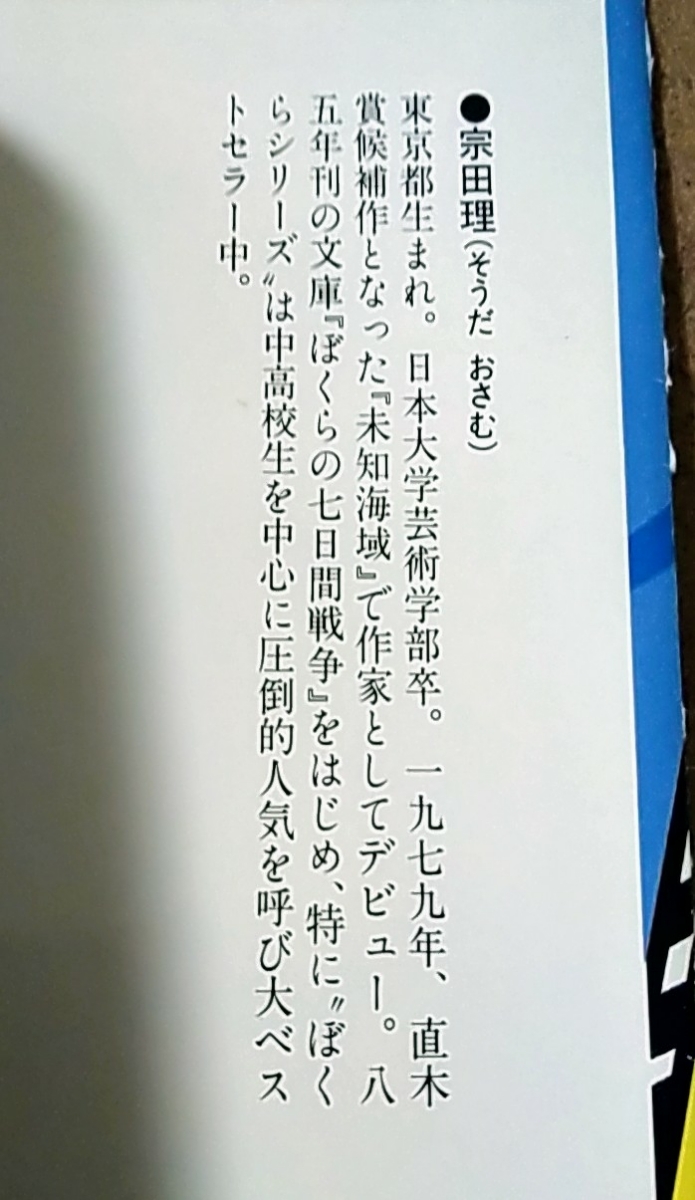 ●宗田理(そうだ おさむ)
東京都生まれ。日本大学芸術学部卒。一九七九年、直木
賞候補作となった『未知海域』で作家としてデビュー。八
五年刊の文庫『ぼくらの七日間戦争』をはじめ、特に〝ぼく
らシリーズ〟は中高校生を中心に圧倒的人気を呼び大ベス
トセラー中。